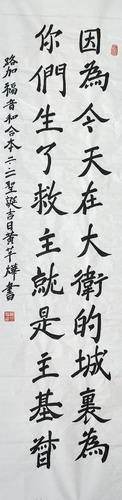 因為今天在大衛的城裏為
你們生了救主就是主基督
路加福音和合本二.二聖誕吉日黃芊燁書